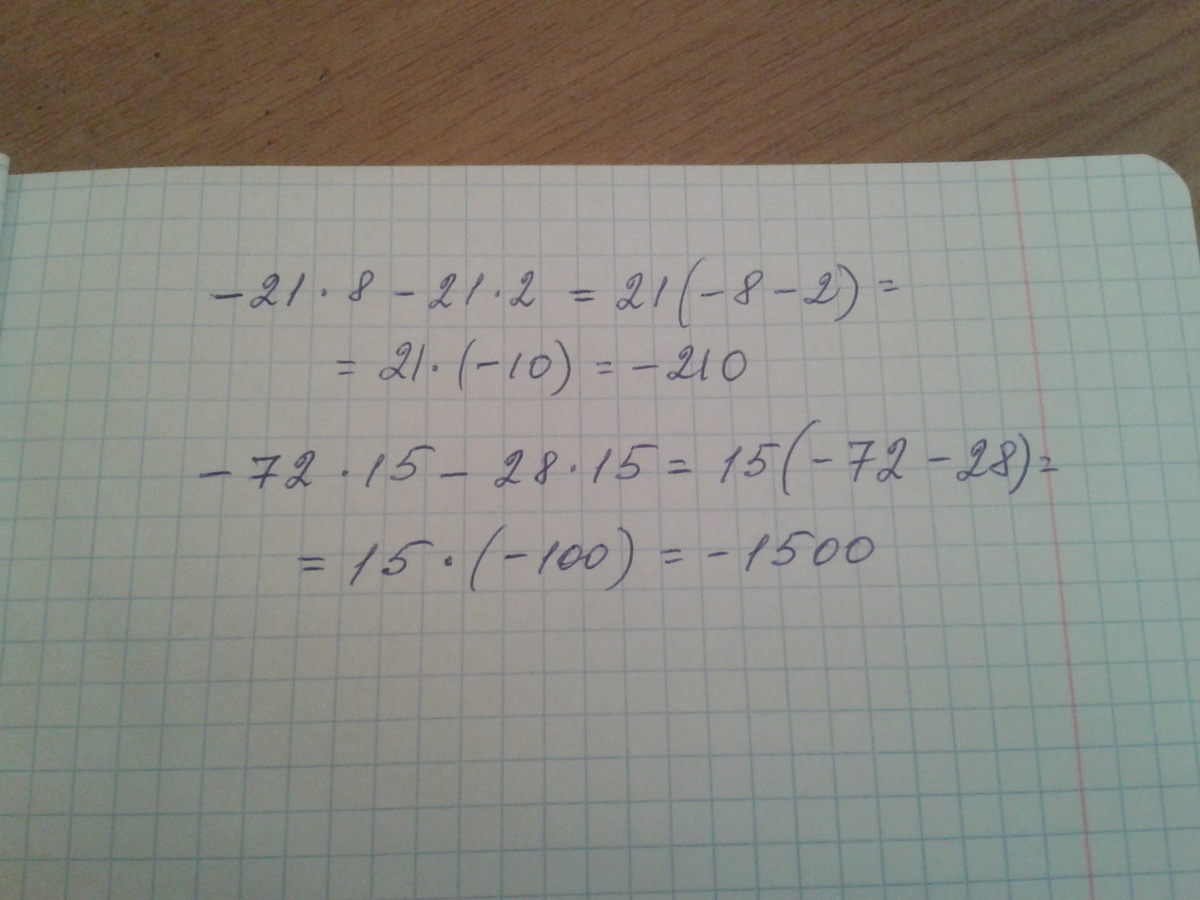 -21·8-21·2 = 21(-8-2)=
= 21·(-10) = -210
-72·15-28·15 = 15(-72-28)=
= 15·(-100) = -1500